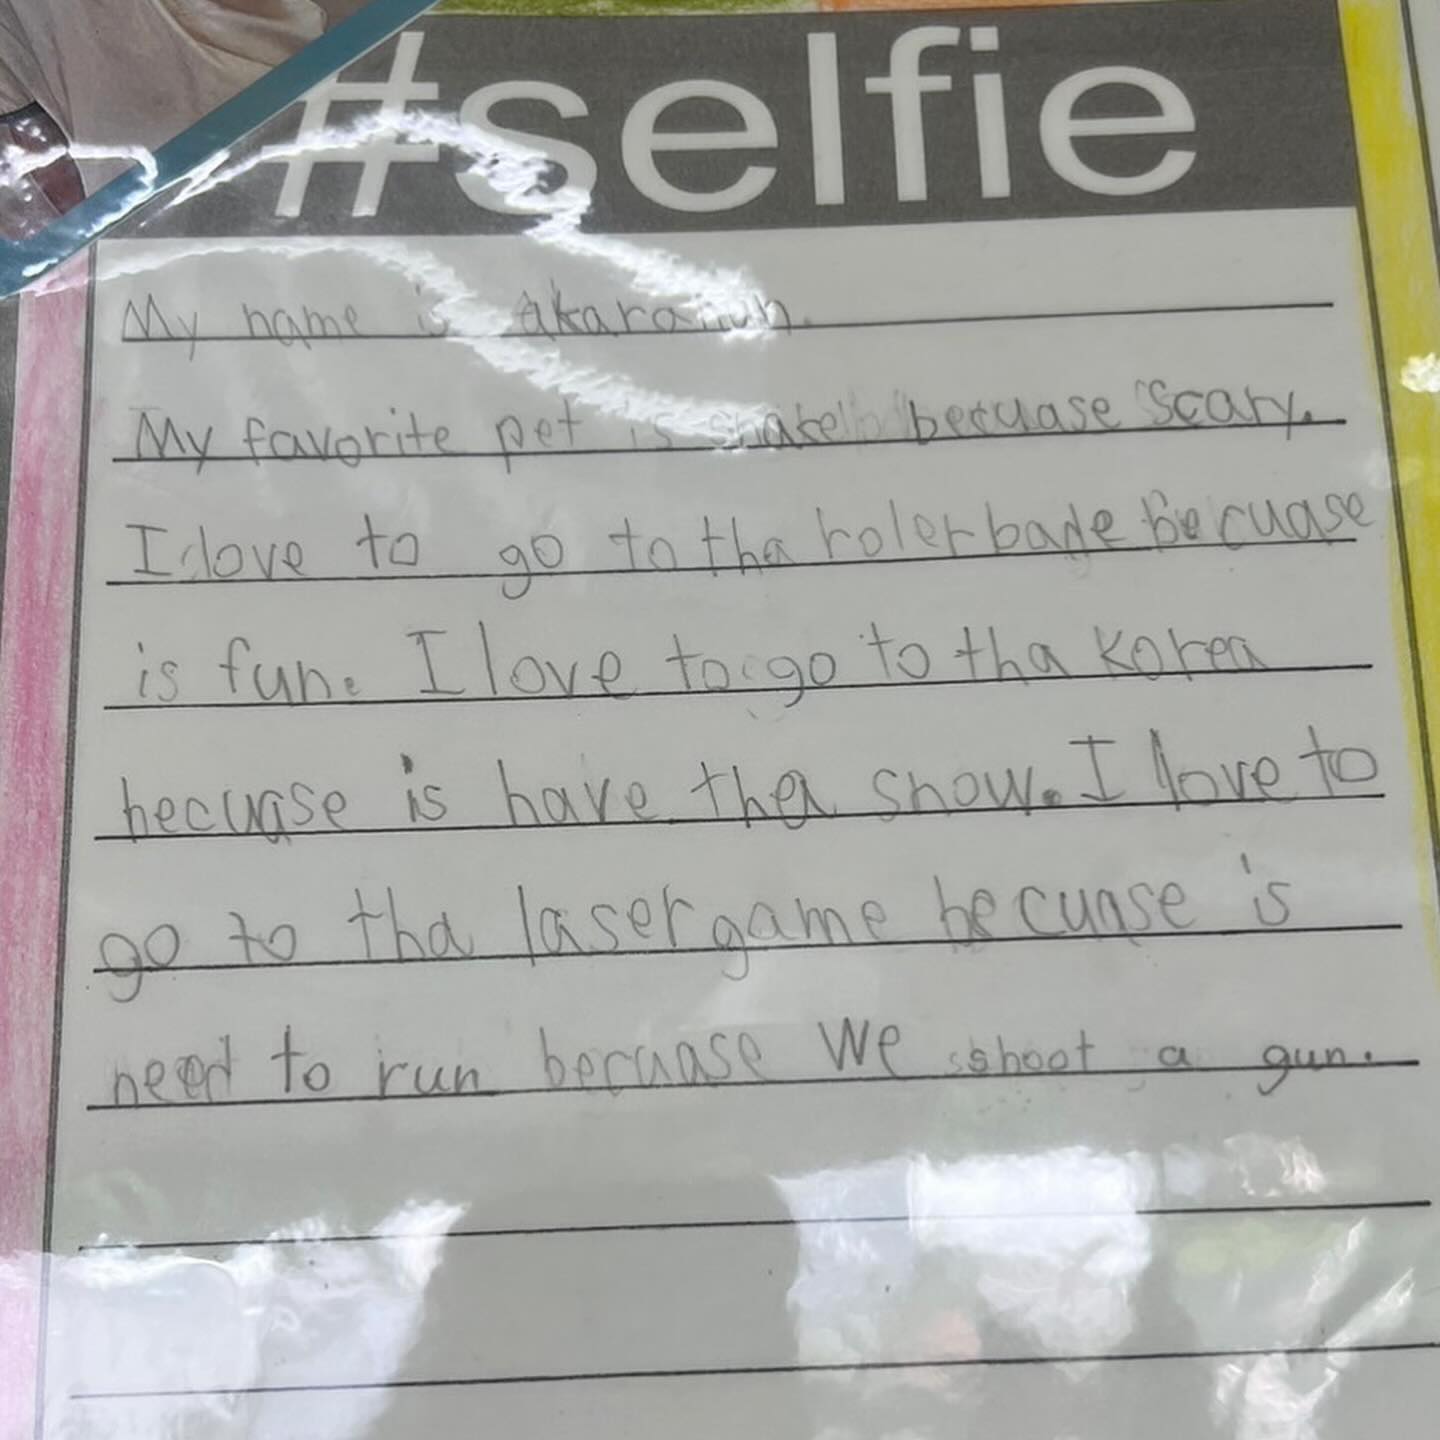 #selfie
My name is
My favorite pet is snake becuase scary.
I love to go to tha rolerbade Becuase
is fun. I love to go to tha korea
becuase is have tha snow. I love to
go to tha lasergame becuase is
need to run becuase We shoot a gun.